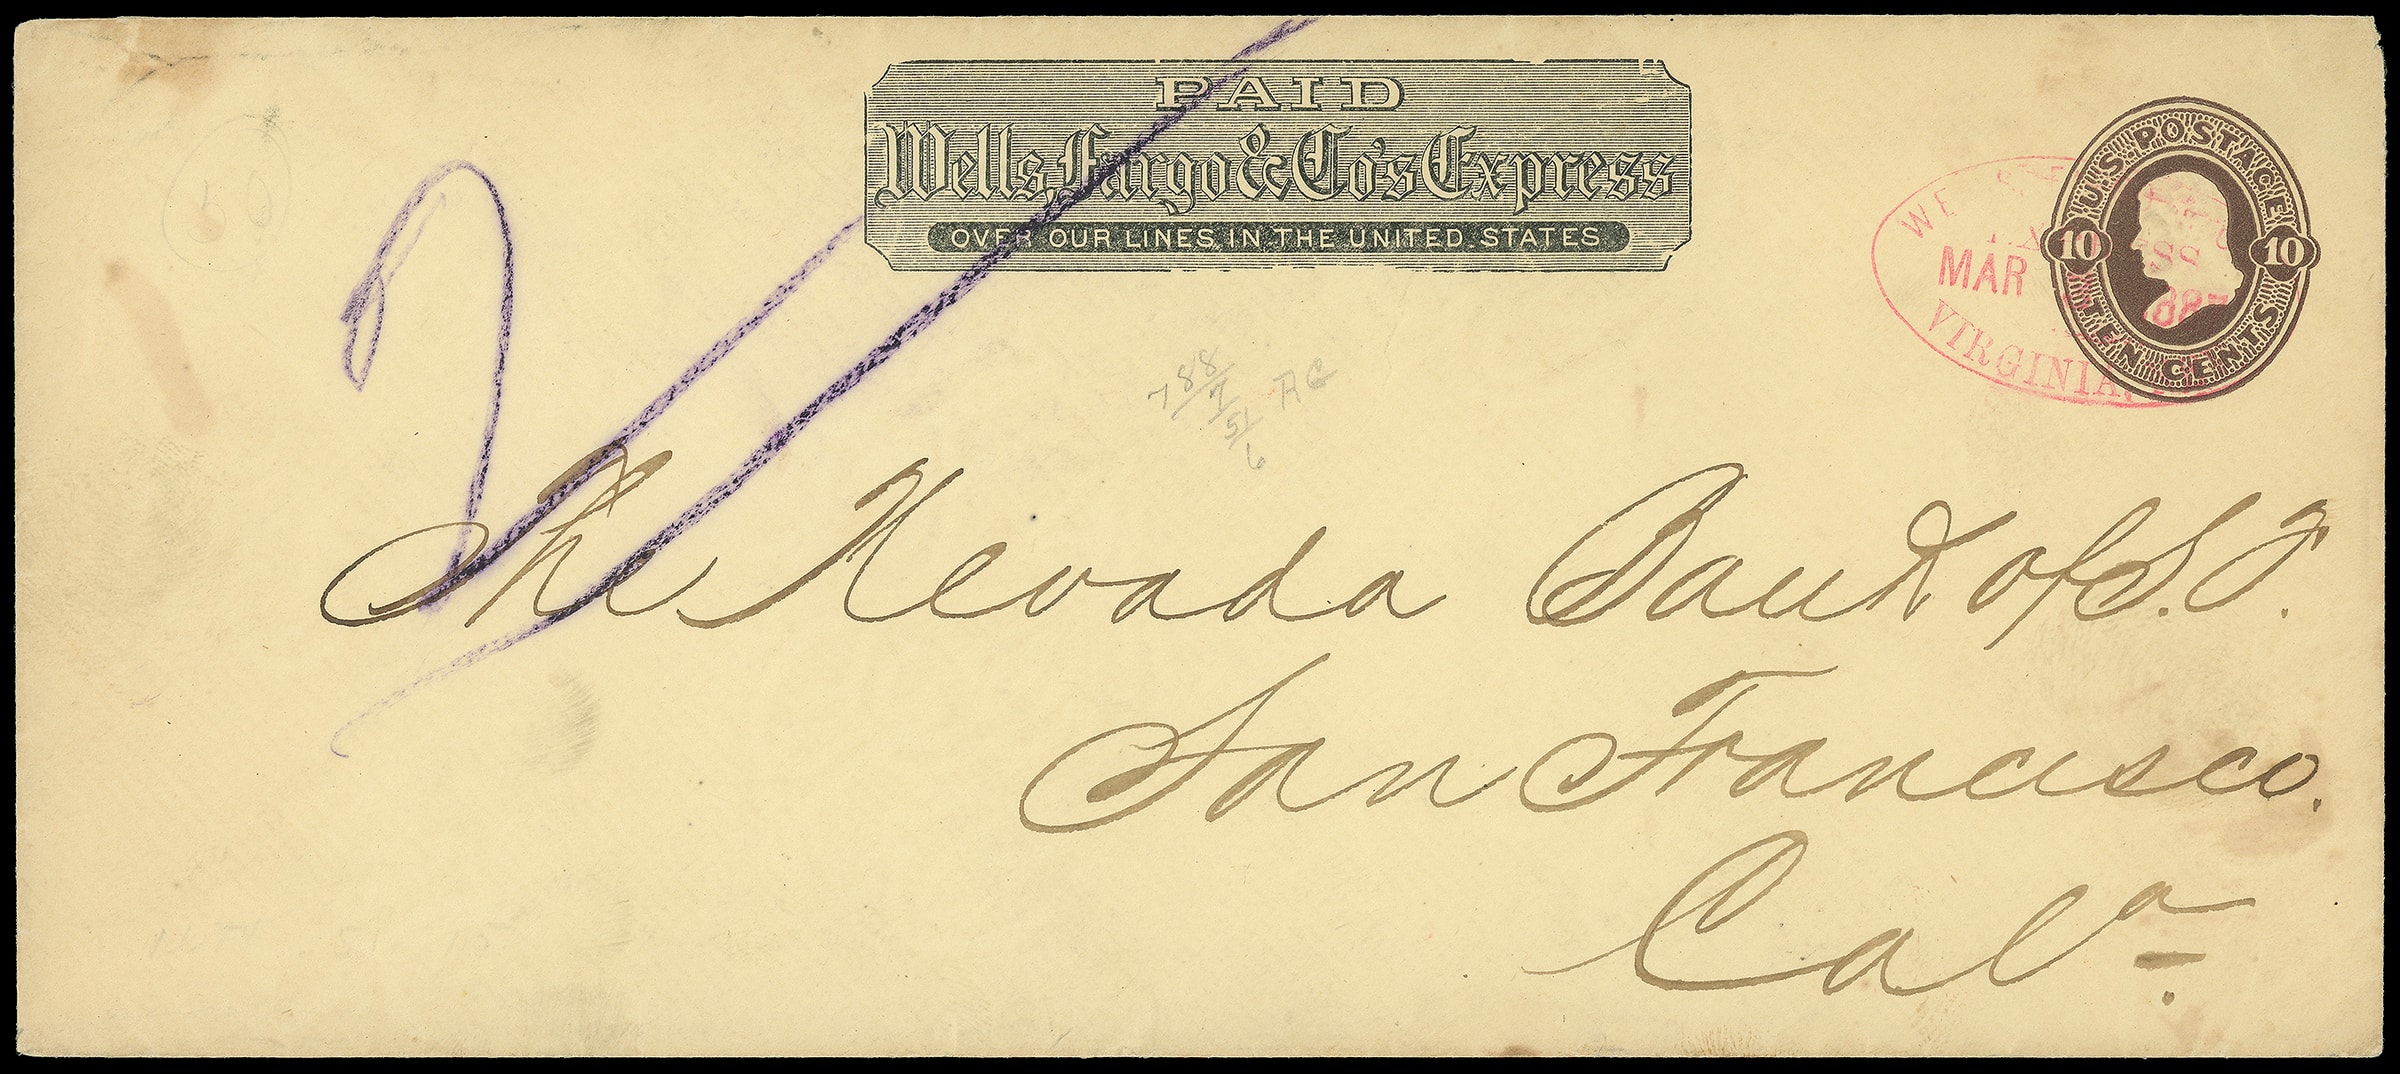 PAID
Wells, Fargo & Co's Express
OVER OUR LINES IN THE UNITED STATES
U.S. POSTAGE
10 10
TEN CENTS
MAR
VIRGINIA,
788/1 AG
51
6
The Nevada Bank of S.F.
San Francisco.
Cala.